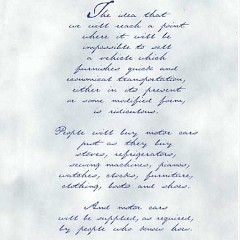 The idea that
we will reach a point
where it will be
impossible to sell
a vehicle which
furnishes quick and
economical transportation,
either in its present
or some modified form,
is ridiculous.
People will buy motor cars
just as they buy
stoves, refrigerators,
sewing machines, pianos,
watches, clocks, furniture,
clothing, boots and shoes.
And motor cars
will be supplied, as required,
by people who know how.